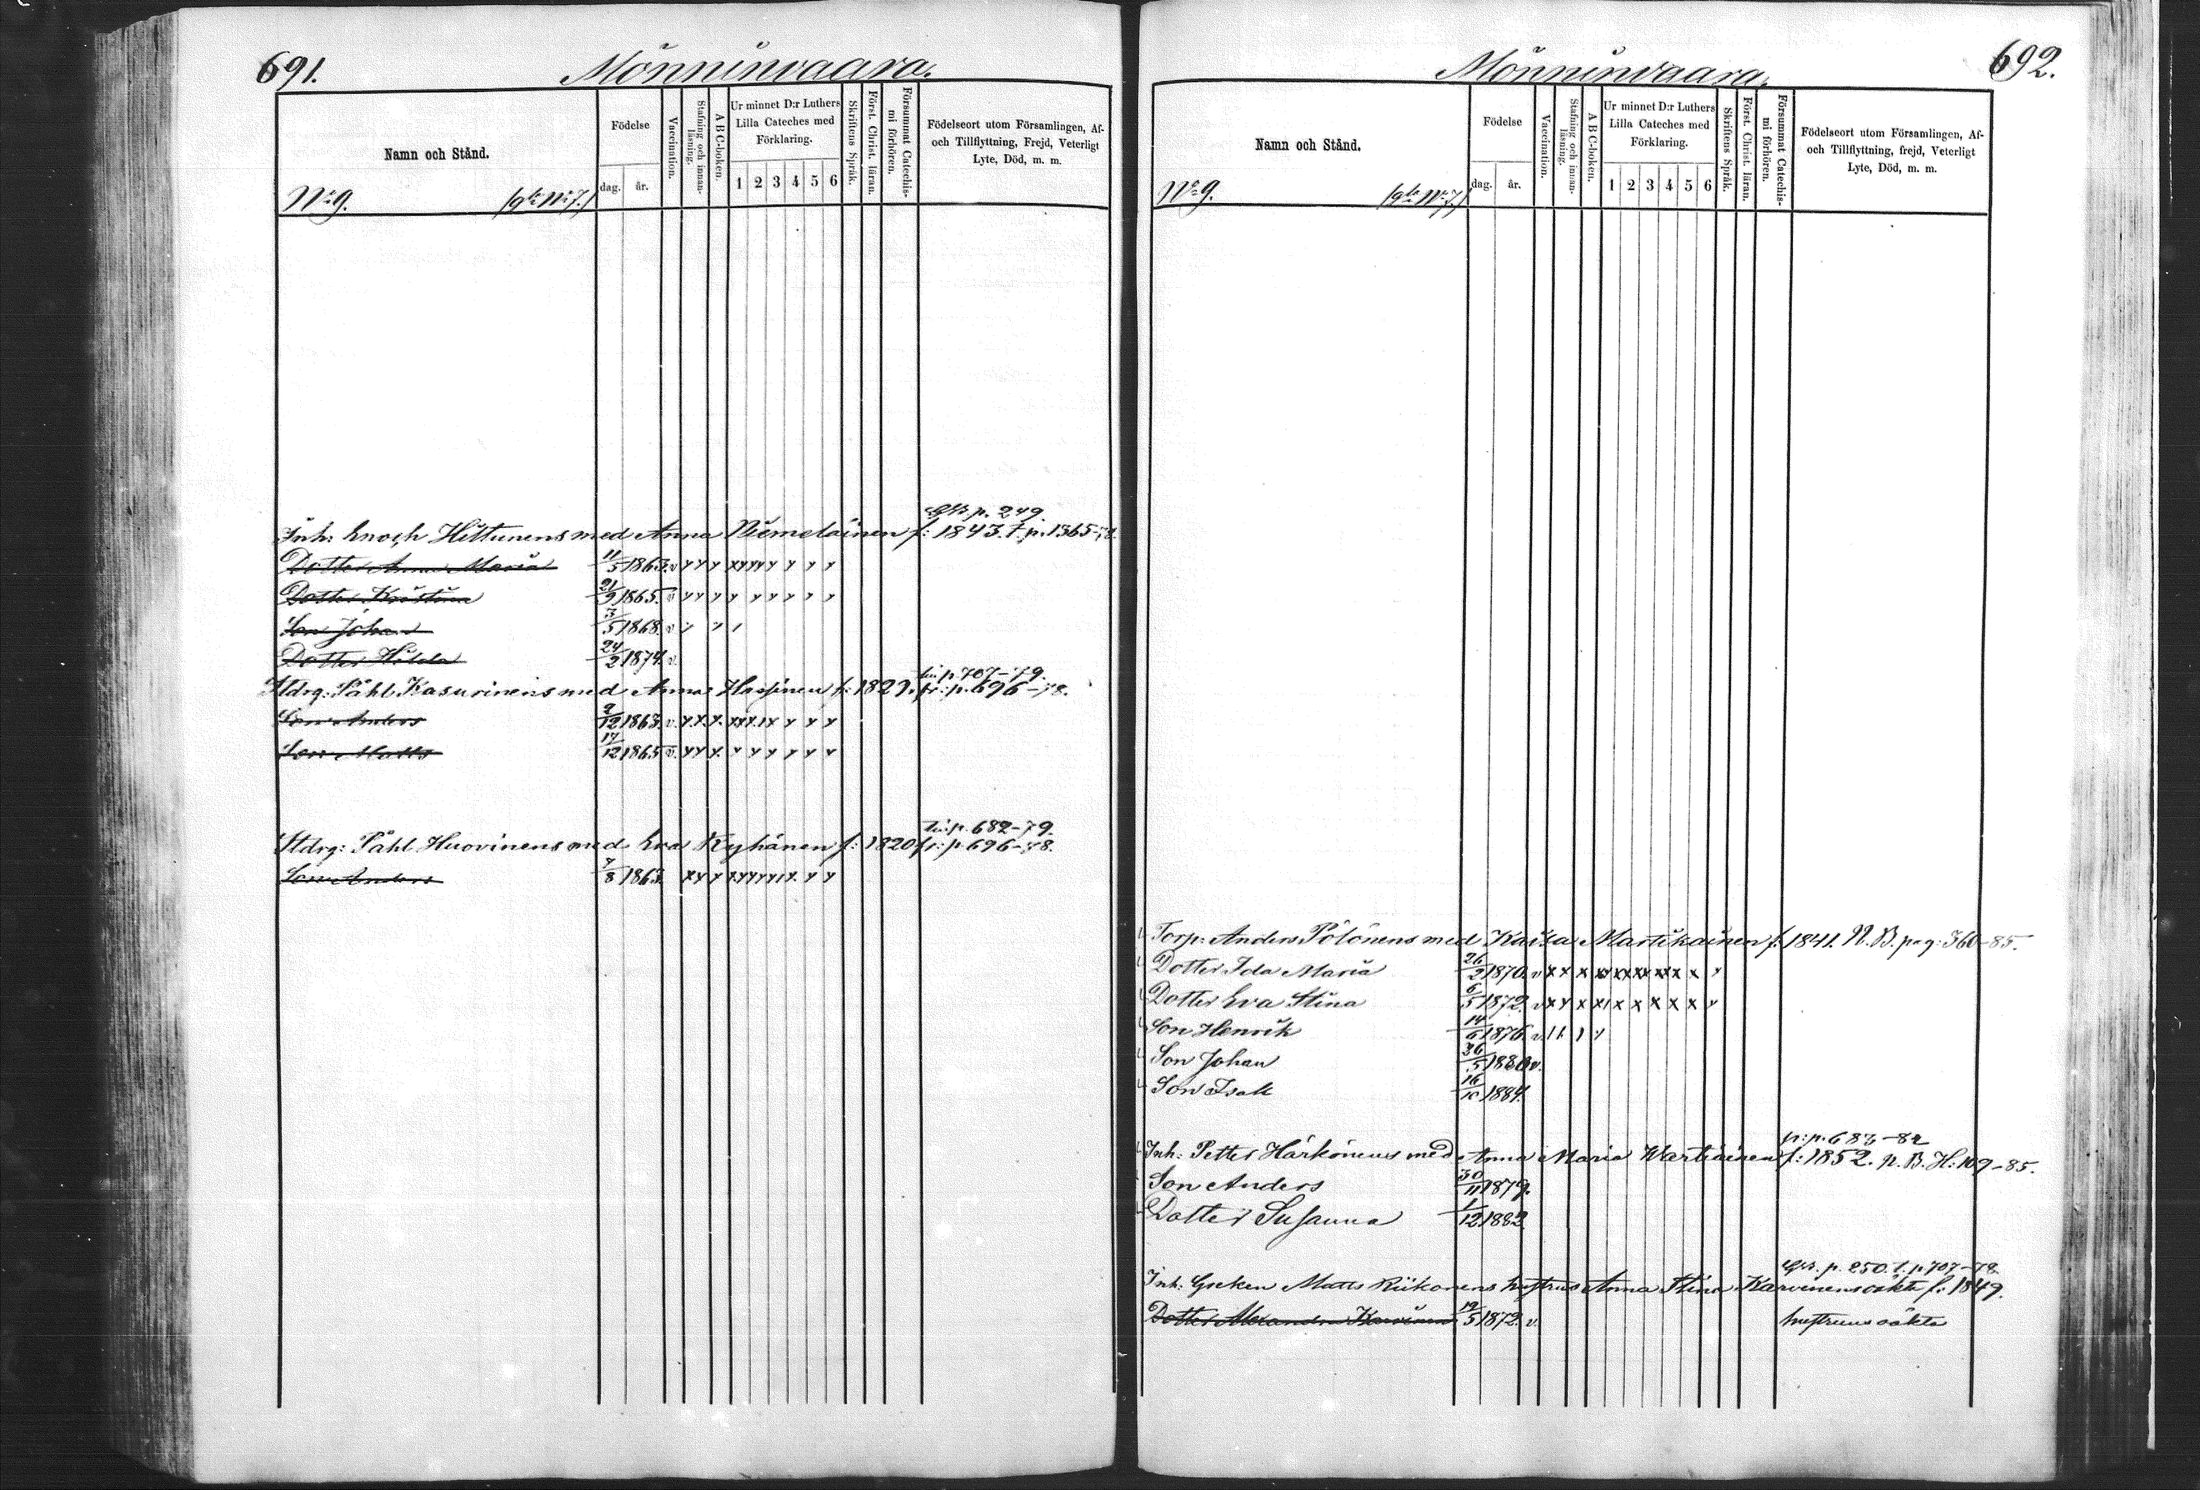 691.
Mönninvaara.
Namn och Stånd.
Födelse
dag.
år.
Vaccination.
Stafning och innan-
läsning.
A B C-boken.
Ur minnet D:r Luthers
Lilla Cateches med
Förklaring.
1 2 3 4 5 6
Skriftens Språk.
Först. Christ. läran.
Försummat Catechis-
mi förhören.
Födelseort utom Församlingen, Af-
och Tillflyttning, Frejd, Veterligt
Lyte, Död, m. m.
No 9.
(gla No 7.)
p. 249
Inh: Enoch Hiltunens med Anna Niemeläinen f: 1843. † p. 1365-78.
Dotter Anna Maria 11/5 1863. v
Dotter Kristina 21/9 1865. v
Son Johan 3/5 1868. v
Dotter Hilda 24/2 1874. v.
p. 707-79.
Ildrg: Påhl Kasurinens med Anna Hassinen f: 1829. fr: p. 696-78.
Son Anders 2/12 1863. v.
Son Matts 17/12 1865. v.
p. 682-79.
Ildrg: Påhl Huovinens med Eva Ryhänen f: 1820 fr: p. 696-78.
Son Anders 7/8 1863.
692.
Mönninvaara.
Namn och Stånd.
Födelse
dag.
år.
Vaccination.
Stafning och innan-
läsning.
A B C-boken.
Ur minnet D:r Luthers
Lilla Cateches med
Förklaring.
1 2 3 4 5 6
Skriftens Språk.
Först. Christ. läran.
Försummat Catechis-
mi förhören.
Födelseort utom Församlingen, Af-
och Tillflyttning, frejd, Veterligt
Lyte, Död, m. m.
No 9.
(gla No 7.)
Torp: Anders Pölönens med Kaisa Martikainen f: 1841. N. B. pag: 360-85.
Dotter Ida Maria 26/2 1870. v
Dotter Eva Stina 6/5 1872. v
Son Henrik 14/6 1876. v.
Son Johan 5 1880 v.
Son Isak 16/10 1884.
p. 683-82
Inh: Petter Härkönens med Anna Maria Wartiainen f: 1852. n. B. H: 109-85.
Son Anders 30/11 1879.
Dotter Susanna 1/12 1882
p. 250. t. p. 707-78
Inh: Greken Matts Riikonens hustrus Anna Stina Karvinens oäkta f: 1849.
Dotter Alexandra Karvinen 19/5 1872. v.
hustruns oäkta